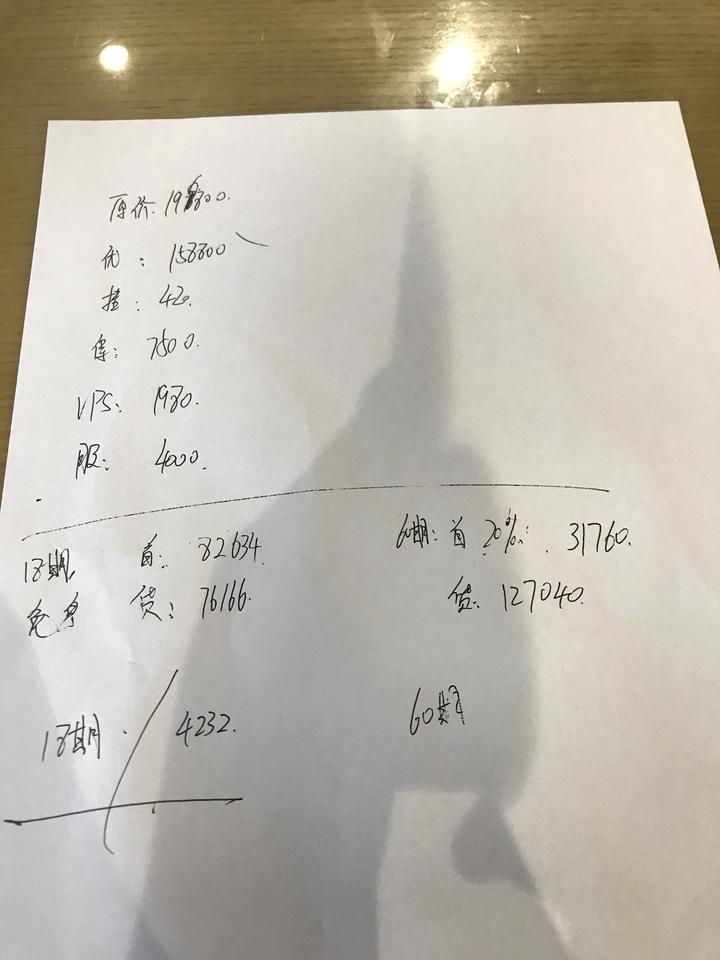 原价: 19800.
优: 158800
挂: 420.
保: 7500.
VPS: 1980.
服: 4000.
18期 首: 82634.
免息 贷: 76166.
60期: 首 20%: 31760.
贷: 127040.
18期. 4232.
60期